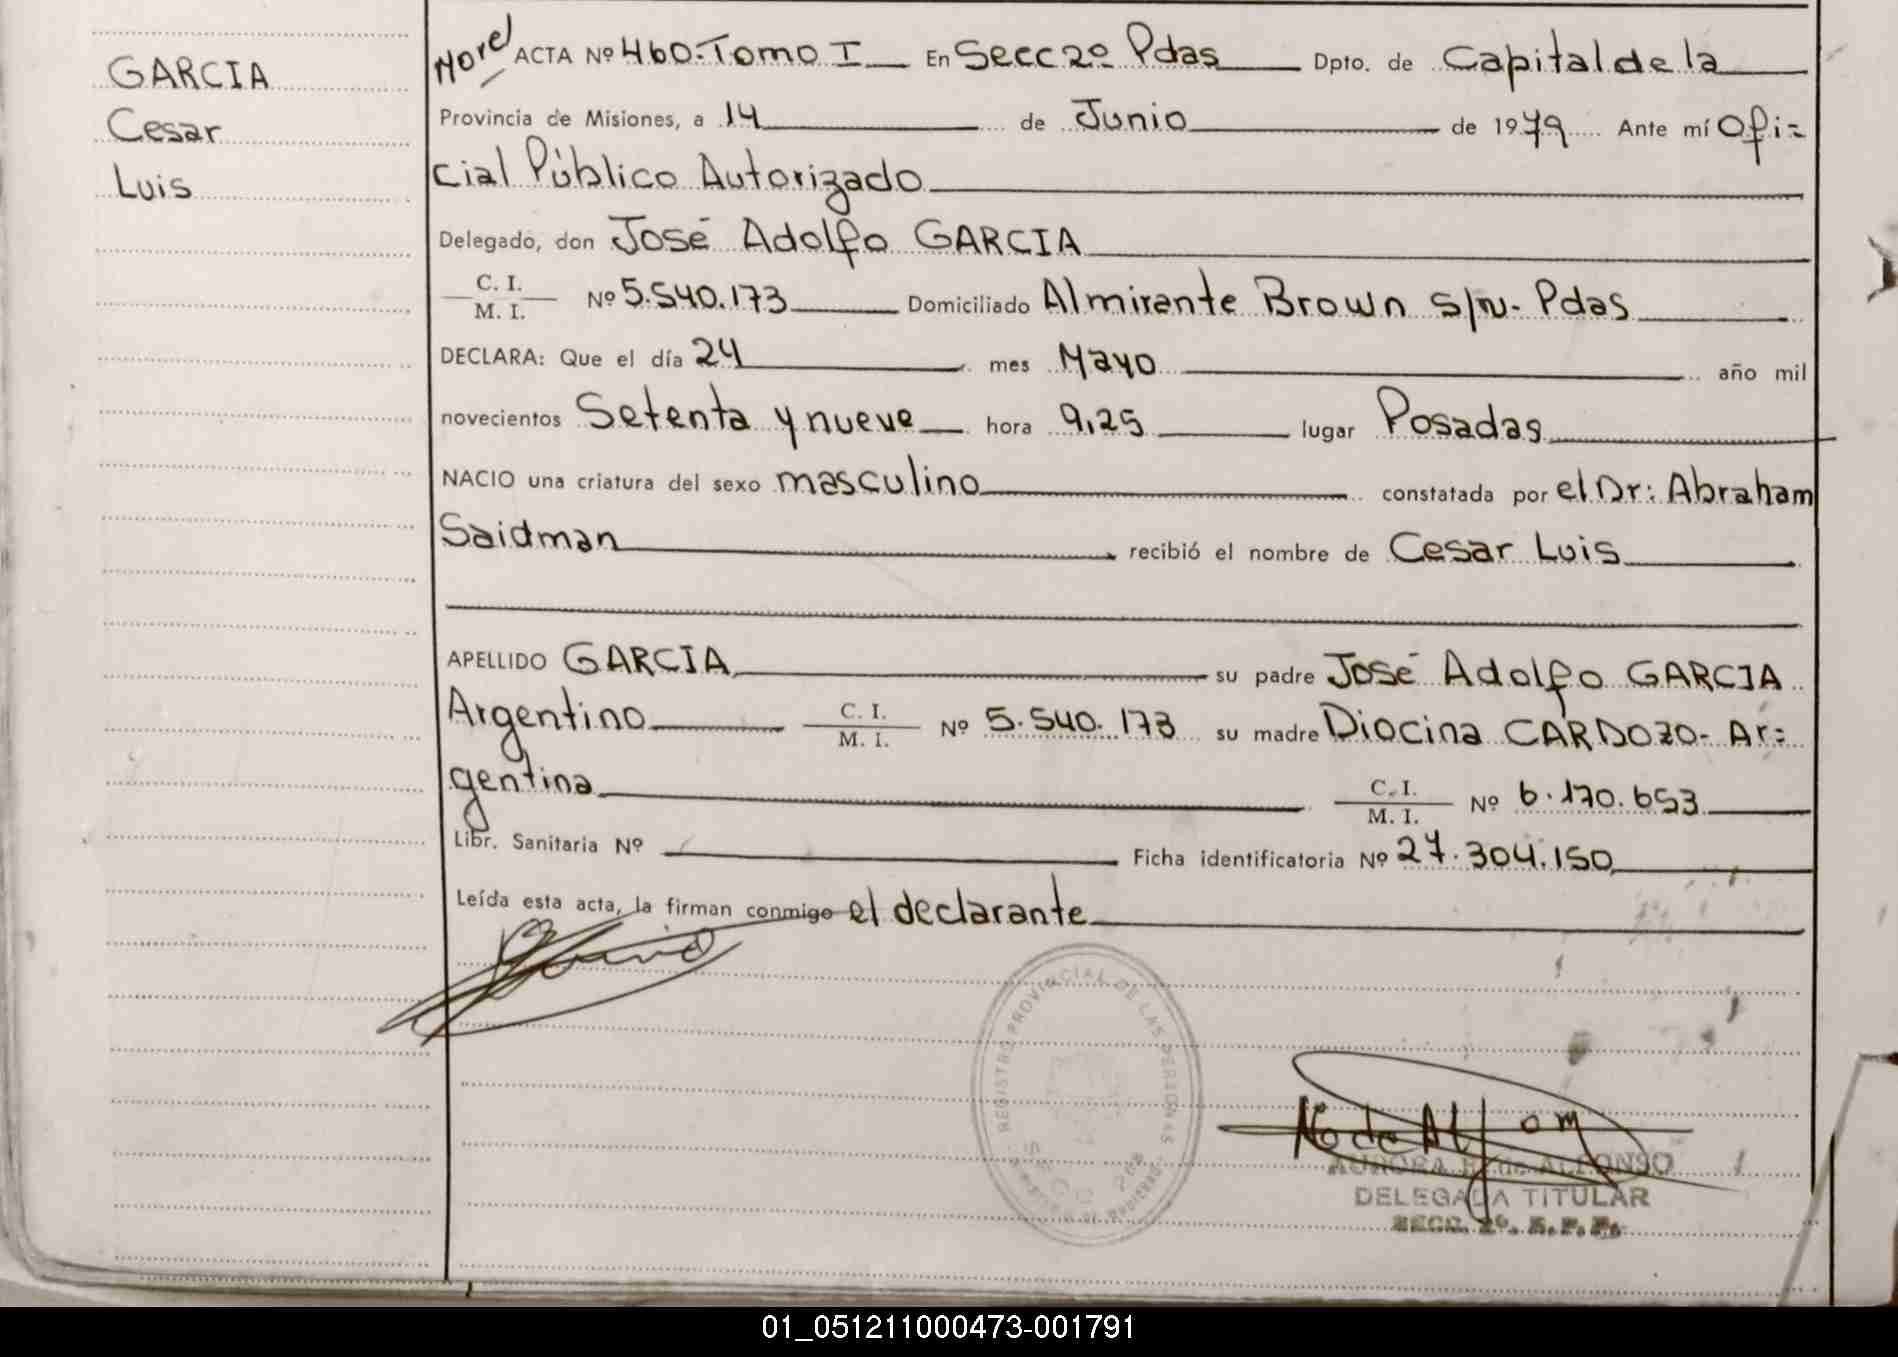 GARCIA
Cesar
Luis
ACTA Nº 460-Tomo I En Secc 2º Pdas Dpto. de Capital de la
Provincia de Misiones, a 14 de Junio de 1979 Ante mí Ofi=
cial Público Autorizado
Delegado, don José Adolfo GARCIA
C. I.
M. I. Nº 5.540.173 Domiciliado Almirante Brown s/n- Pdas
DECLARA: Que el día 24 mes Mayo año mil
novecientos Setenta y nueve hora 9,25 lugar Posadas
NACIO una criatura del sexo masculino constatada por el Dr: Abraham
Saidman recibió el nombre de Cesar Luis
APELLIDO GARCIA su padre José Adolfo GARCIA
Argentino C. I. M. I. Nº 5.540.173 su madre Diocina CARDOZO- Ar=
gentina C. I. M. I. Nº 6.170.653
Libr. Sanitaria Nº Ficha identificatoria Nº 27.304.150
Leída esta acta, la firman conmigo el declarante
REGISTRO PROVINCIAL DE LAS PERSONAS
AURORA de ALFONSO
DELEGADA TITULAR
SECC. 2º.
01_051211000473-001791